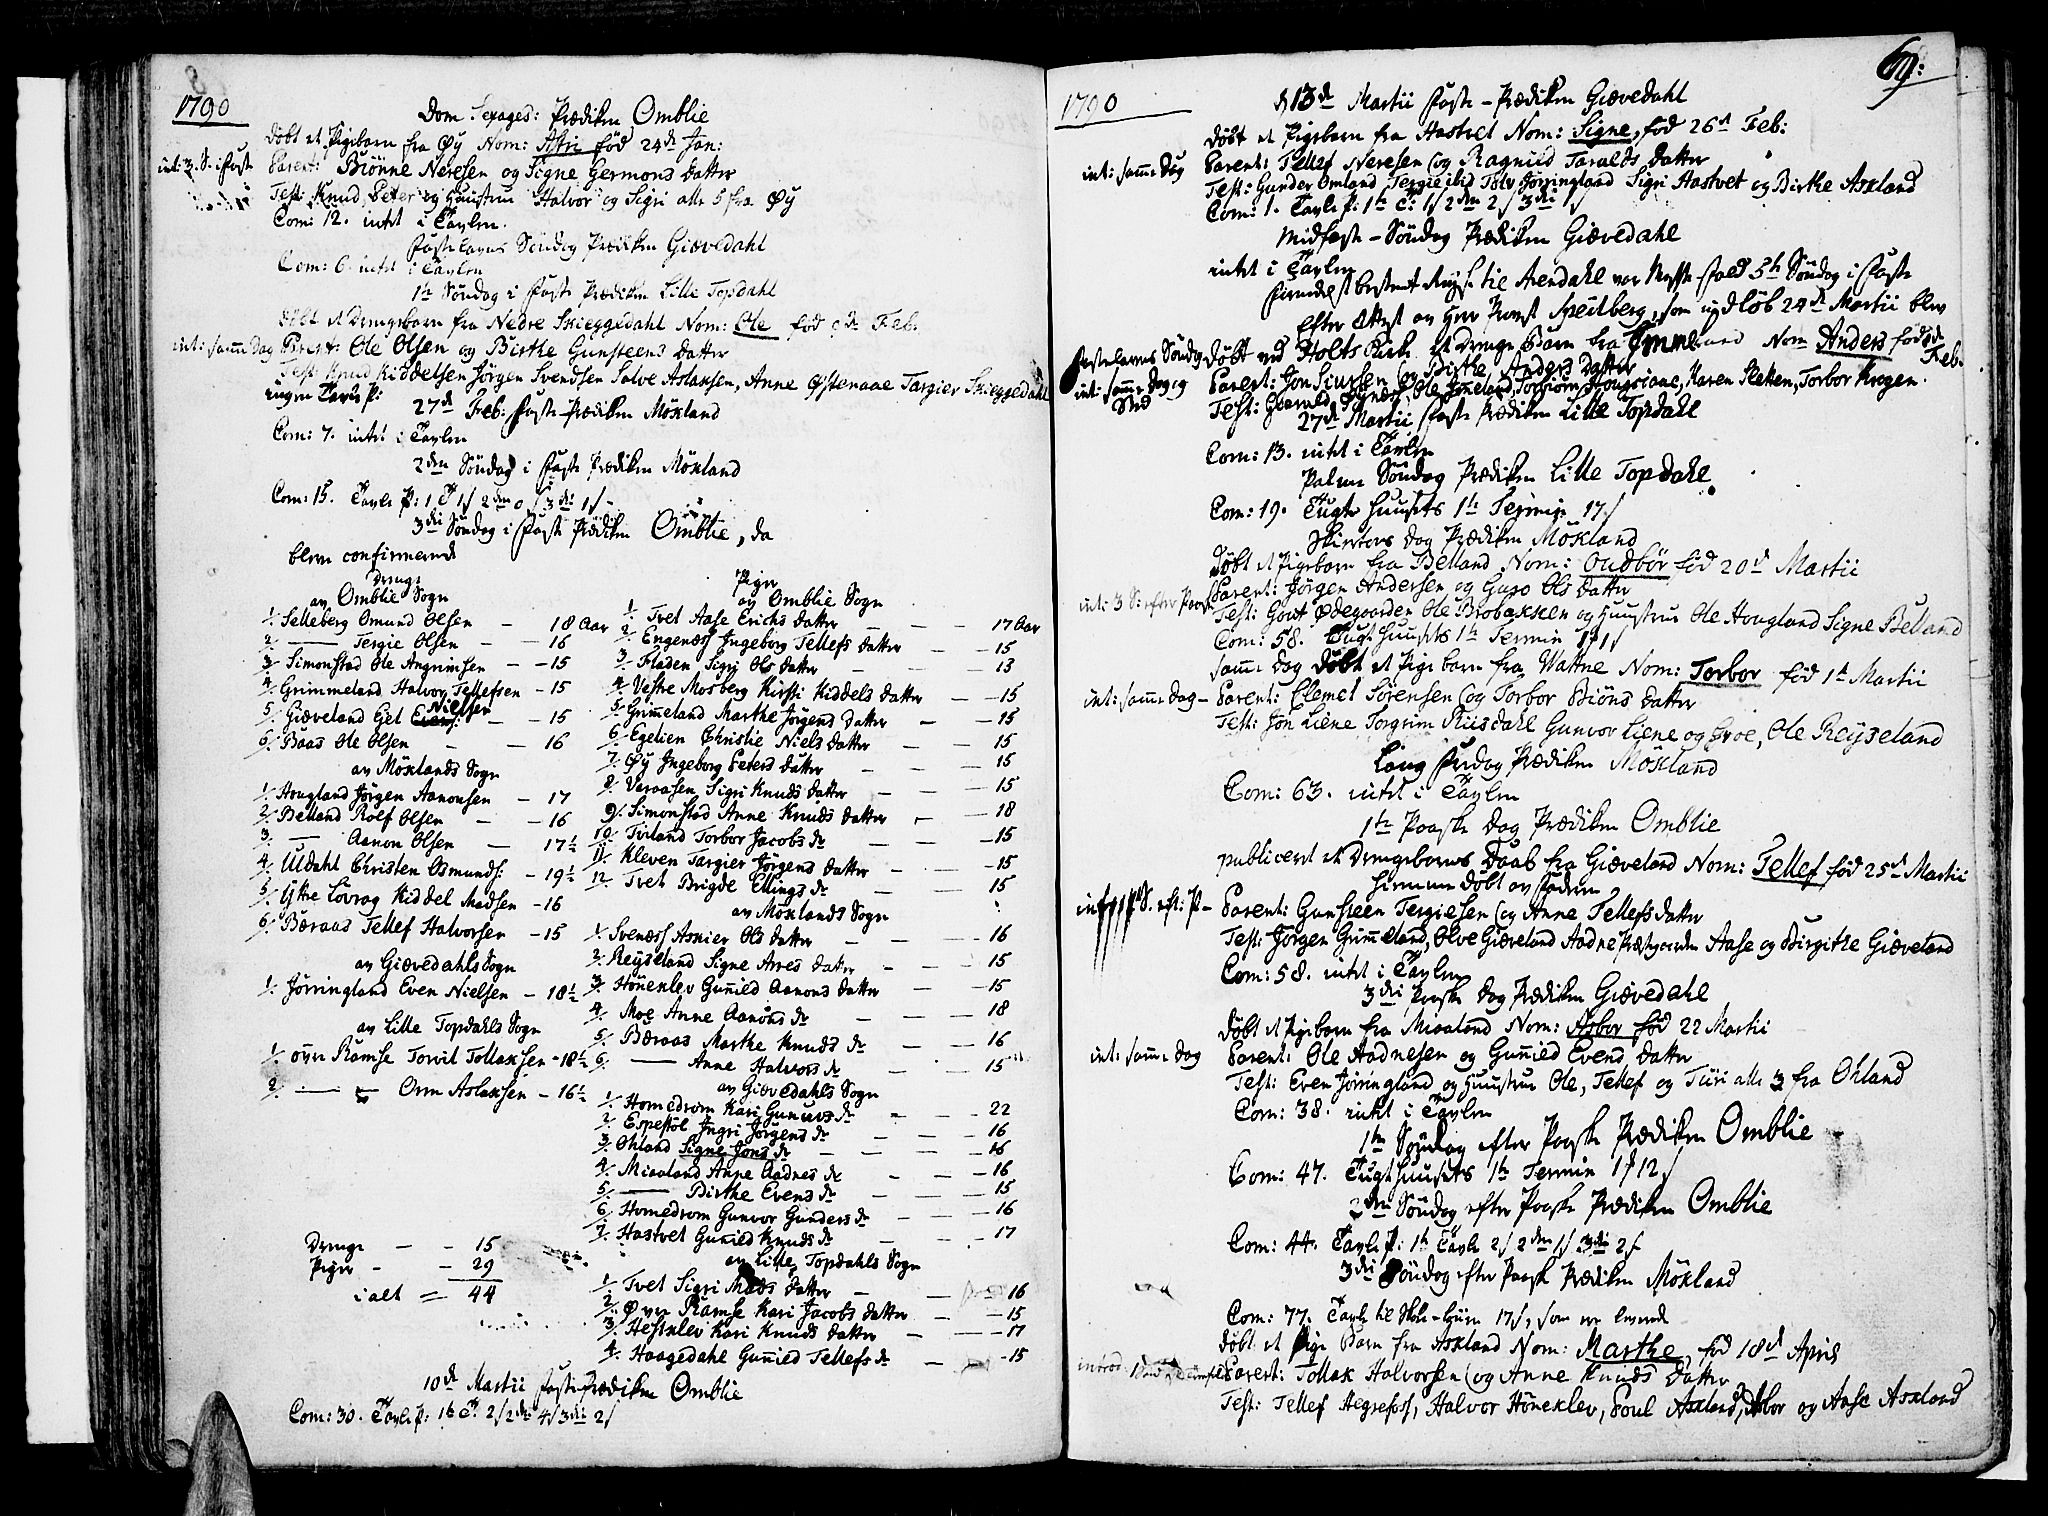 1790
Dom Sexages: Prædiken Omblie
døbt et Pigebarn fra Øy Nom: Astri fød 24de Jan:
int: 3. S. i Faste Parent: Biønne Neresen og Signe Germons datter
Test: Knud, Peter og Huustrue Halvor og Sigri alle 5 fra Øy
Com: 12. intet i Tavlen.
Fastelavns Søndag Prædiken Giævedahl
Com: 6. intet i Tavlen
1te Søndag i Faste Prædiken Lille Topdahl
døbt et Drengebarn fra Nedre Skieggedahl Nom: Ole fød de Feb.
int: samme Dag Parent: Ole Olsen og Birthe Gunsteens datter
Test: Knud Kiddelsen Jørgen Svendsen Salve Aslaksen, Anne Østenaae Targier Skieggedahl
ingen Tavle p:
27de Feb: Faste-Prædiken Møkland
Com: 7. intet i Tavlen
2den Søndag i Faste Prædiken Møkland
Com: 15. Tavle p: 1 T 1/ 2den 0/ 3di 1/-
3di Søndag i Faste Prædiken Omblie, da
bleve confirmerede
Drenge
av Omblie Sogn
1/. Selleberg Omund Olsen - 18 Aar
2/. — Tergie Olsen - 16
3/. Simonstad Ole Angrimsen - 15
4/. Grimmeland Halvor Tellefsen - 15
5/. Giæveland Gel Nielsen - 15
6/. Baas Ole Olsen - 16
av Møklands Sogn
1/. Hougland Jørgen Aanonsen - 17
2/. Belland Rolf Olsen - 16
3. — Aanon Olsen - 17½
4/. Uldahl Christen Osmunds: - 19½
5/. Ytre Lovrag Kiddel Madsen - 16
6/. Bæraas Tellef Halvorsen - 15
av Giævedahls Sogn
1/. Jørringland Even Nielsen - 18½
av Lille Topdahls Sogn
1/. øvre Ramse Torvil Tollaksen - 18½
2/. — — Orm Aslaksen - 16½
Drenge - - 15
Piger - - 29
i alt = 44
Piger
av Omblie Sogn
1/. Tvet Aase Erichs datter - 17 Aar
2/. Engenæss Ingeborg Tellefs datter - 15
3/. Fladen Sigri Ols datter - 13
4/. Vestre Mosberg Kirsti Kiddels datter - 15
5/. Grimmeland Marthe Jørgens datter - 15
6/. Egelien Christie Niels datter - 15
7/. Øy Ingeborg Peters datter - 15
8/. Veraasen Sigri Knuds datter - 15
9/. Simonstad Anne Knuds datter - 18
10/. Tirland Torbor Jacobs dr - 15
11/. Kleven Targier Jørgens datter - 15
12/. Tvet Brigde Ellings dr - 15
av Møklands Sogn
1/. Svenæss Askier Ols datter - 16
2/. Reyseland Signe Arres datter - 15
3/. Hønenlev Gunnild Aanons datter - 15
4/. Moe Anne Aanons dr - 18
5/. Bæraas Marthe Knuds dr - 16
6/. — Anne Halvors dr - 15
av Giævedahls Sogn
1/. Homedrom Kari Gunuvs dr - 22
2/. Espestøl Ingri Jørgens dr - 16
3/. Ohland Signe Jons dr - 16
4/. Miaaland Anne Aadnes dr - 16
5/. — Birthe Evens dr - 15
6/. Homedrom Gunvor Gunders dr - 16
7/. Hastvet Gunnild Knuds dr - 17
av Lille Topdahls Sogn
1/. Tvet Sigri Mads datter - 16
2/. Øvre Ramse Kari Jacobs datter - 15
3/. Hestklev Kari Knuds datter - 17
4/. Haagedahl Gunnild Tellefs dr - 15
10de Martii Faste Prædiken Omblie
Com: 30. Tavle p: 1te T. 2/ 2den 4/ 3di 2/
69:
1790
d 13de Martii Faste-Prædiken Giævedahl
døbt et Pigebarn fra Hastvet Nom: Signe, fød 26de Feb:
int: samme Dag Parent: Tellef Neresen og Ragnild Taralds datter
Test: Gunder Omland Tergie ibid Tolv Jørringland Sigri Hastvet og Birthe Askland
Com: 1. Tavle p: 1te T: 1/ 2den 2/ 3di 1/
Midfaste-Søndag Prædiken Giævedahl
intet i Tavlen
Formedelst bestemt Reyse til Arendahl var Messe-fald 5te Søndag i Faste
Efter Attest av Herr Provst Speilberg, som indløb 24de Martii blev
Fastelavns Søndag døbt ved Holts Kirke et Drenge Barn fra Immeland Nom Anders fød de Feb.
int: samme Dag og Sted Parent: Jon Siursen og Birthe Anders datter
Test: Ole Imeland, Torbiørn Hougsiaae, Karen Sletten, Torbor Krogen.
27de Martii Faste Prædiken Lille Topdahl
Com: 13. intet i Tavlen
Palme Søndag Prædiken Lille Topdahl
Com: 19. Tugthuusets 1te Termin 17/
Skiertors Dag Prædiken Møkland
døbt et Pigebarn fra Belland Nom: Oudbør fød 20de Martii
int: 3 S: efter Paaske Parent: Jørgen Andersen og Guro Ols datter
Test: Gout Ødegaarden Ole Brobakken og Huustrue Ole Hougland Signe Belland
Com: 58. Tugthuusets 1te Termin
samme Dag døbt et Pige barn fra Wattne Nom: Torbor fød 1te Martii
int: samme Dag- Parent: Clemet Sørensen og Torbor Biøns datter
Test: Jon Liene Torgrim Riisdahl Gunvor Liene og Groe, Ole Reyseland
Lang Fredag Prædiken Møkland
Com: 63. intet i Tavlen
1te Paaske Dag Prædiken Omblie
publiceret et Drengebarns Daab fra Giæveland Nom: Tellef fød 25de Martii
hiemme døbt av Faderen
S. eft: P- Parent: Gunsteen Tergiesen og Anne Tellefs datter
Test: Jørgen Grimmeland, Olve Giæveland Aadne Præstgaarden Aase og Birgithe Giæveland
Com: 58. intet i Tavlen
3di Paaske Dag Prædiken Giævedahl
døbt et Pigebarn fra Miaaland Nom: Asbor fød 22 Martii
int: samme Dag Parent: Ole Aadnesen og Gunnild Evens datter
Test: Even Jørringland og Huustrue Ole, Tellef og Turi alle 3 fra Ohland
Com: 38. intet i Tavlen
1te Søndag efter Paaske Prædiken Omblie
Com: 47. Tugthuusets 1te Termin 1/12/
2den Søndag efter Paaske Prædiken Omblie
Com: 44. Tavle p: 1te Tavle 2/ 2den 1/ 3di 2/-
3di Søndag efter Paaske Prædiken Møkland
Com: 77. Tavle til Skole-Huus 17/, som ere leverede
døbt et Pige Barn fra Askland Nom: Marthe, fød 18de April
introd: Parent: Tollak Halvorsen og Anne Knuds datter
Test: Tellef Hegrefoss, Halvor Hønekley, Poul Askland, Asbor og Aase Askland